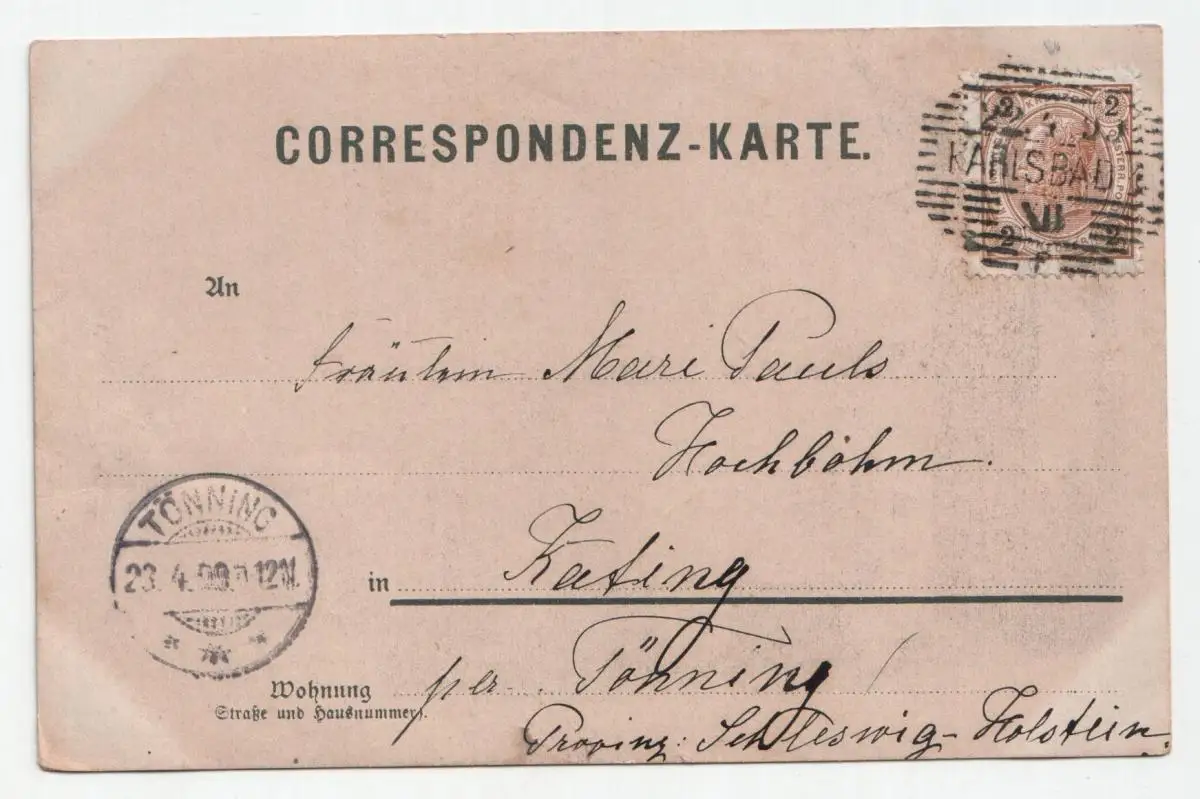 CORRESPONDENZ-KARTE.
2 2
KARLSBAD
VII
2 2
An
Fräulein Mari Pauls
Hochböhm.
TÖNNING
23. 4. 99. 12N.
in Kating
per Tönning
Wohnung
Straße und Hausnummer).
Provinz: Schleswig-Holstein.